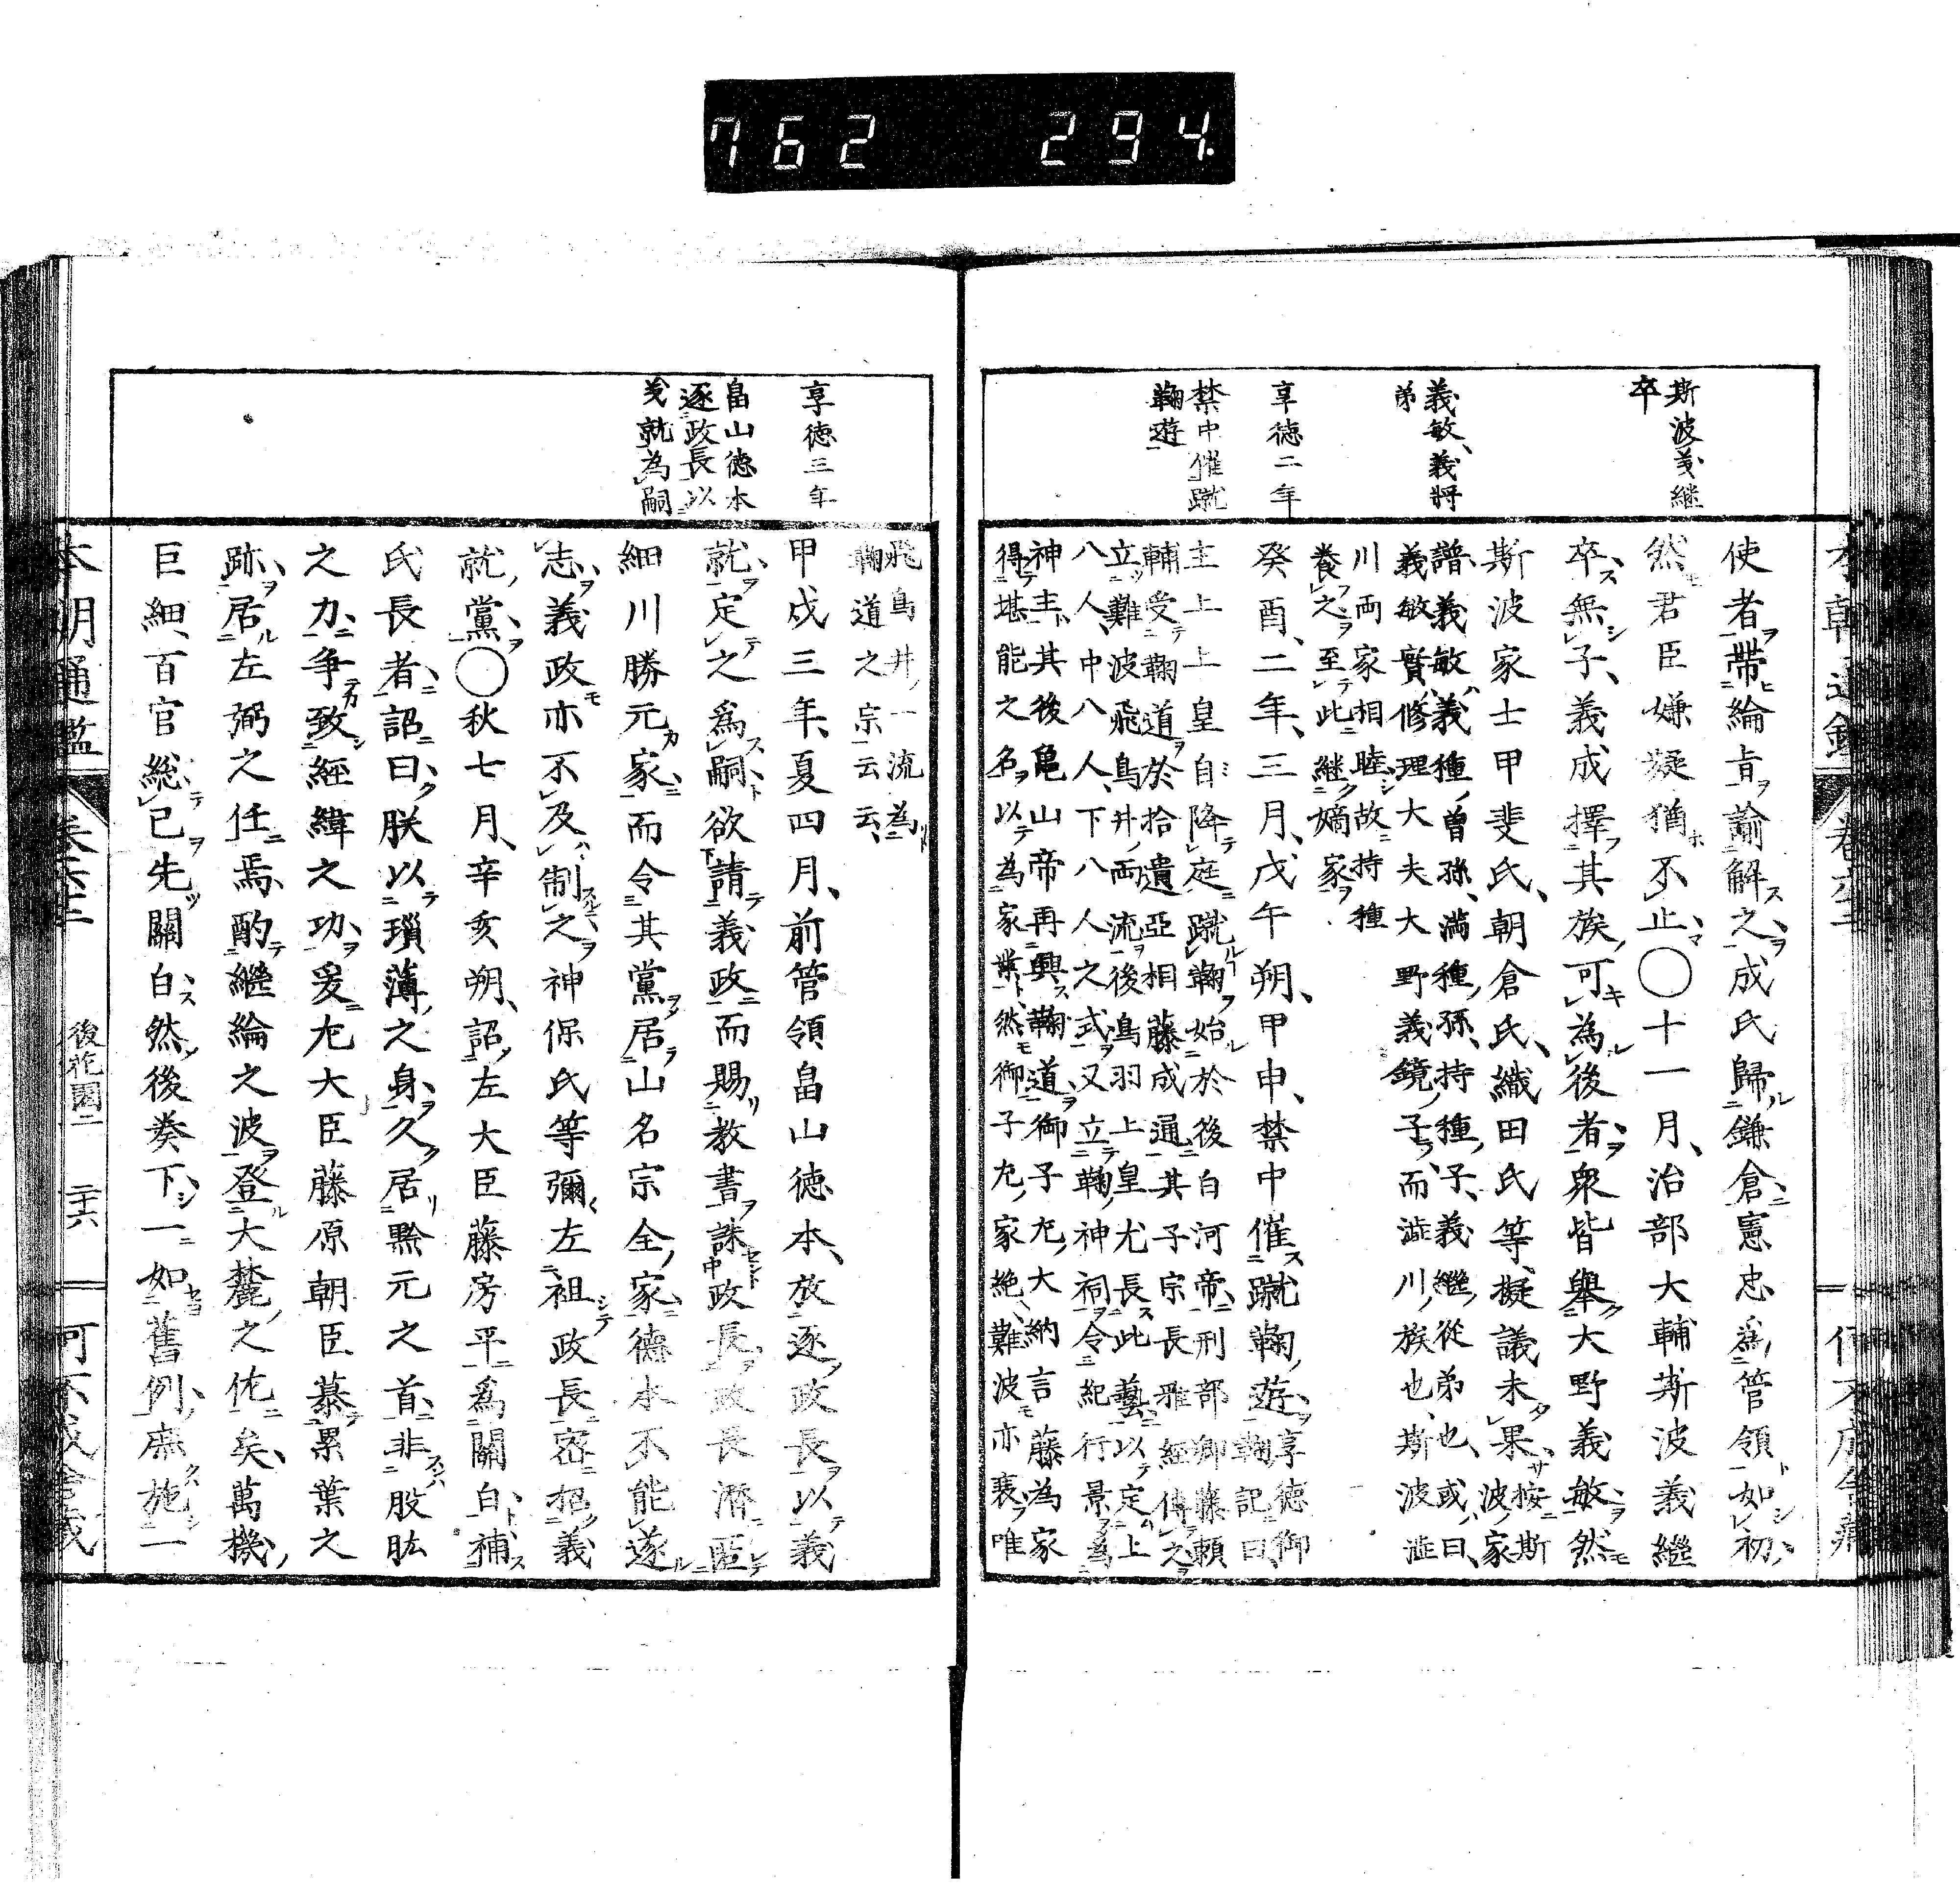 762 294.
斯波義継
卒
義敏、義将
弟
享徳二年
禁中催蹴
鞠遊
使者帶綸旨諭解之成氏歸鎌倉憲忠為管領如初
然君臣嫌疑猶不止〇十一月、治部大輔斯波義繼
卒無子、義成擇其族可為後者衆皆舉大野義敏然
斯波家士甲斐氏、朝倉氏、織田氏等、擬議未果按斯波家
譜義敏義種曽孫、満種孫、持種子、義繼從弟也、或曰、
義敏實修理大夫大野義鏡子、而澁川族也、斯波澁
川両家相睦故持種
養之至此継嫡家
癸酉、二年、三月、戊午朔、甲申、禁中催蹴鞠遊享徳御鞠記曰、
主上上皇自降庭蹴鞠始於後白河帝刑部卿藤頼
輔受鞠道於拾遺亞相藤成通其子宗長雅經傳之
立難波飛鳥井両流後鳥羽上皇尤長此藝以定上
八人、中八人、下八人之式又立鞠神祠令紀行景為
神主其後亀山帝再興鞠道御子尤大納言藤為家
得堪能之名以為家業然御子尤家絶難波亦衰唯
享徳三年
畠山徳本
逐政長以
義就為嗣
飛鳥井一流為
鞠道之宗云云、
甲戌三年、夏四月、前管領畠山徳本、放逐政長以義
就定之為嗣欲請義政而賜教書誅政長政長潛匿
細川勝元家而令其黨居山名宗全家德本不能遂
志義政亦不及制之神保氏等彌左袒政長密招義
就黨〇秋七月、辛亥朔、詔左大臣藤房平為關白補
氏長者詔曰、朕以瑣薄之身久居黔元之首非股肱
之力争致經緯之功爰尤大臣藤原朝臣慕累葉之
跡居左弼之任焉酌繼綸之波登大麓之佐矣萬機
巨細、百官総已先關白然後奏下一如舊例庶施一
後花園二 二十六